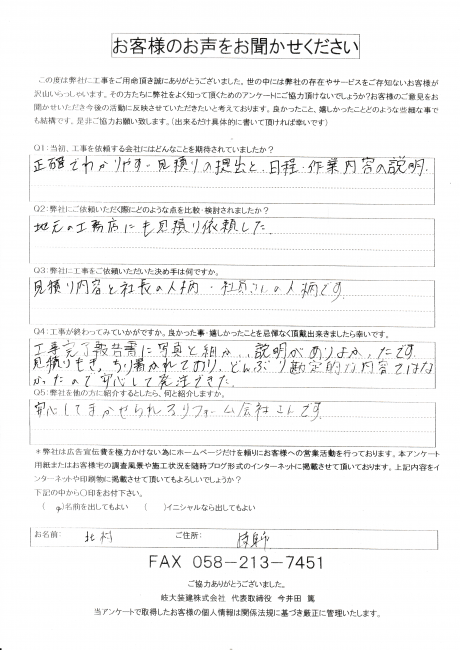 お客様のお声をお聞かせください
この度は弊社に工事をご用命頂き誠にありがとうございました。世の中には弊社の存在やサービスをご存知ないお客様が
沢山いらっしゃいます。その方たちに弊社をよく知って頂くためのアンケートにご協力頂けないでしょうか？お客様のご意見をお
聞かせいただき今後の活動に反映させていただきたいと考えております。良かったこと、嬉しかったことどのような些細な事で
も結構です。是非ご協力お願い致します。（出来るだけ具体的に書いて頂ければ幸いです）
Q1：当初、工事を依頼する会社にはどんなことを期待されていましたか？
正確でわかりやすい見積りの提出と、日程・作業内容の説明.
Q2：弊社にご依頼いただく際にどのような点を比較・検討されましたか？
地元の工務店にも見積り依頼した.
Q3：弊社に工事をご依頼いただいた決め手は何ですか。
見積り内容と社長の人柄・社員さんの人柄です
Q4：工事が終わってみていかがですか。良かった事・嬉しかったことを忌憚なく頂戴出来きましたら幸いです。
工事完了報告書に写真と細かい説明がありよかったです
見積りもきっちり書かれており、どんぶり勘定的な内容ではな
かったので安心して発注できた.
Q5：弊社を他の方に紹介するとしたら、何と紹介しますか。
安心してまかせられるリフォーム会社さんです.
＊弊社は広告宣伝費を極力かけない為にホームページだけを頼りにお客様への営業活動を行っております。本アンケート
用紙またはお客様宅の調査風景や施工状況を随時ブログ形式のインターネットに掲載させて頂いております。上記内容をイ
ンターネットや印刷物に掲載させて頂いてもよろしいでしょうか？
下記の中から○印をお付下さい。
（ ○ ）名前を出してもよい （ ）イニシャルなら出してもよい
お名前： 北村 ご住所：
FAX 058-213-7451
ご協力ありがとうございました。
岐大装建株式会社 代表取締役 今井田 篤
当アンケートで取得したお客様の個人情報は関係法規に基づき厳正に管理いたします。